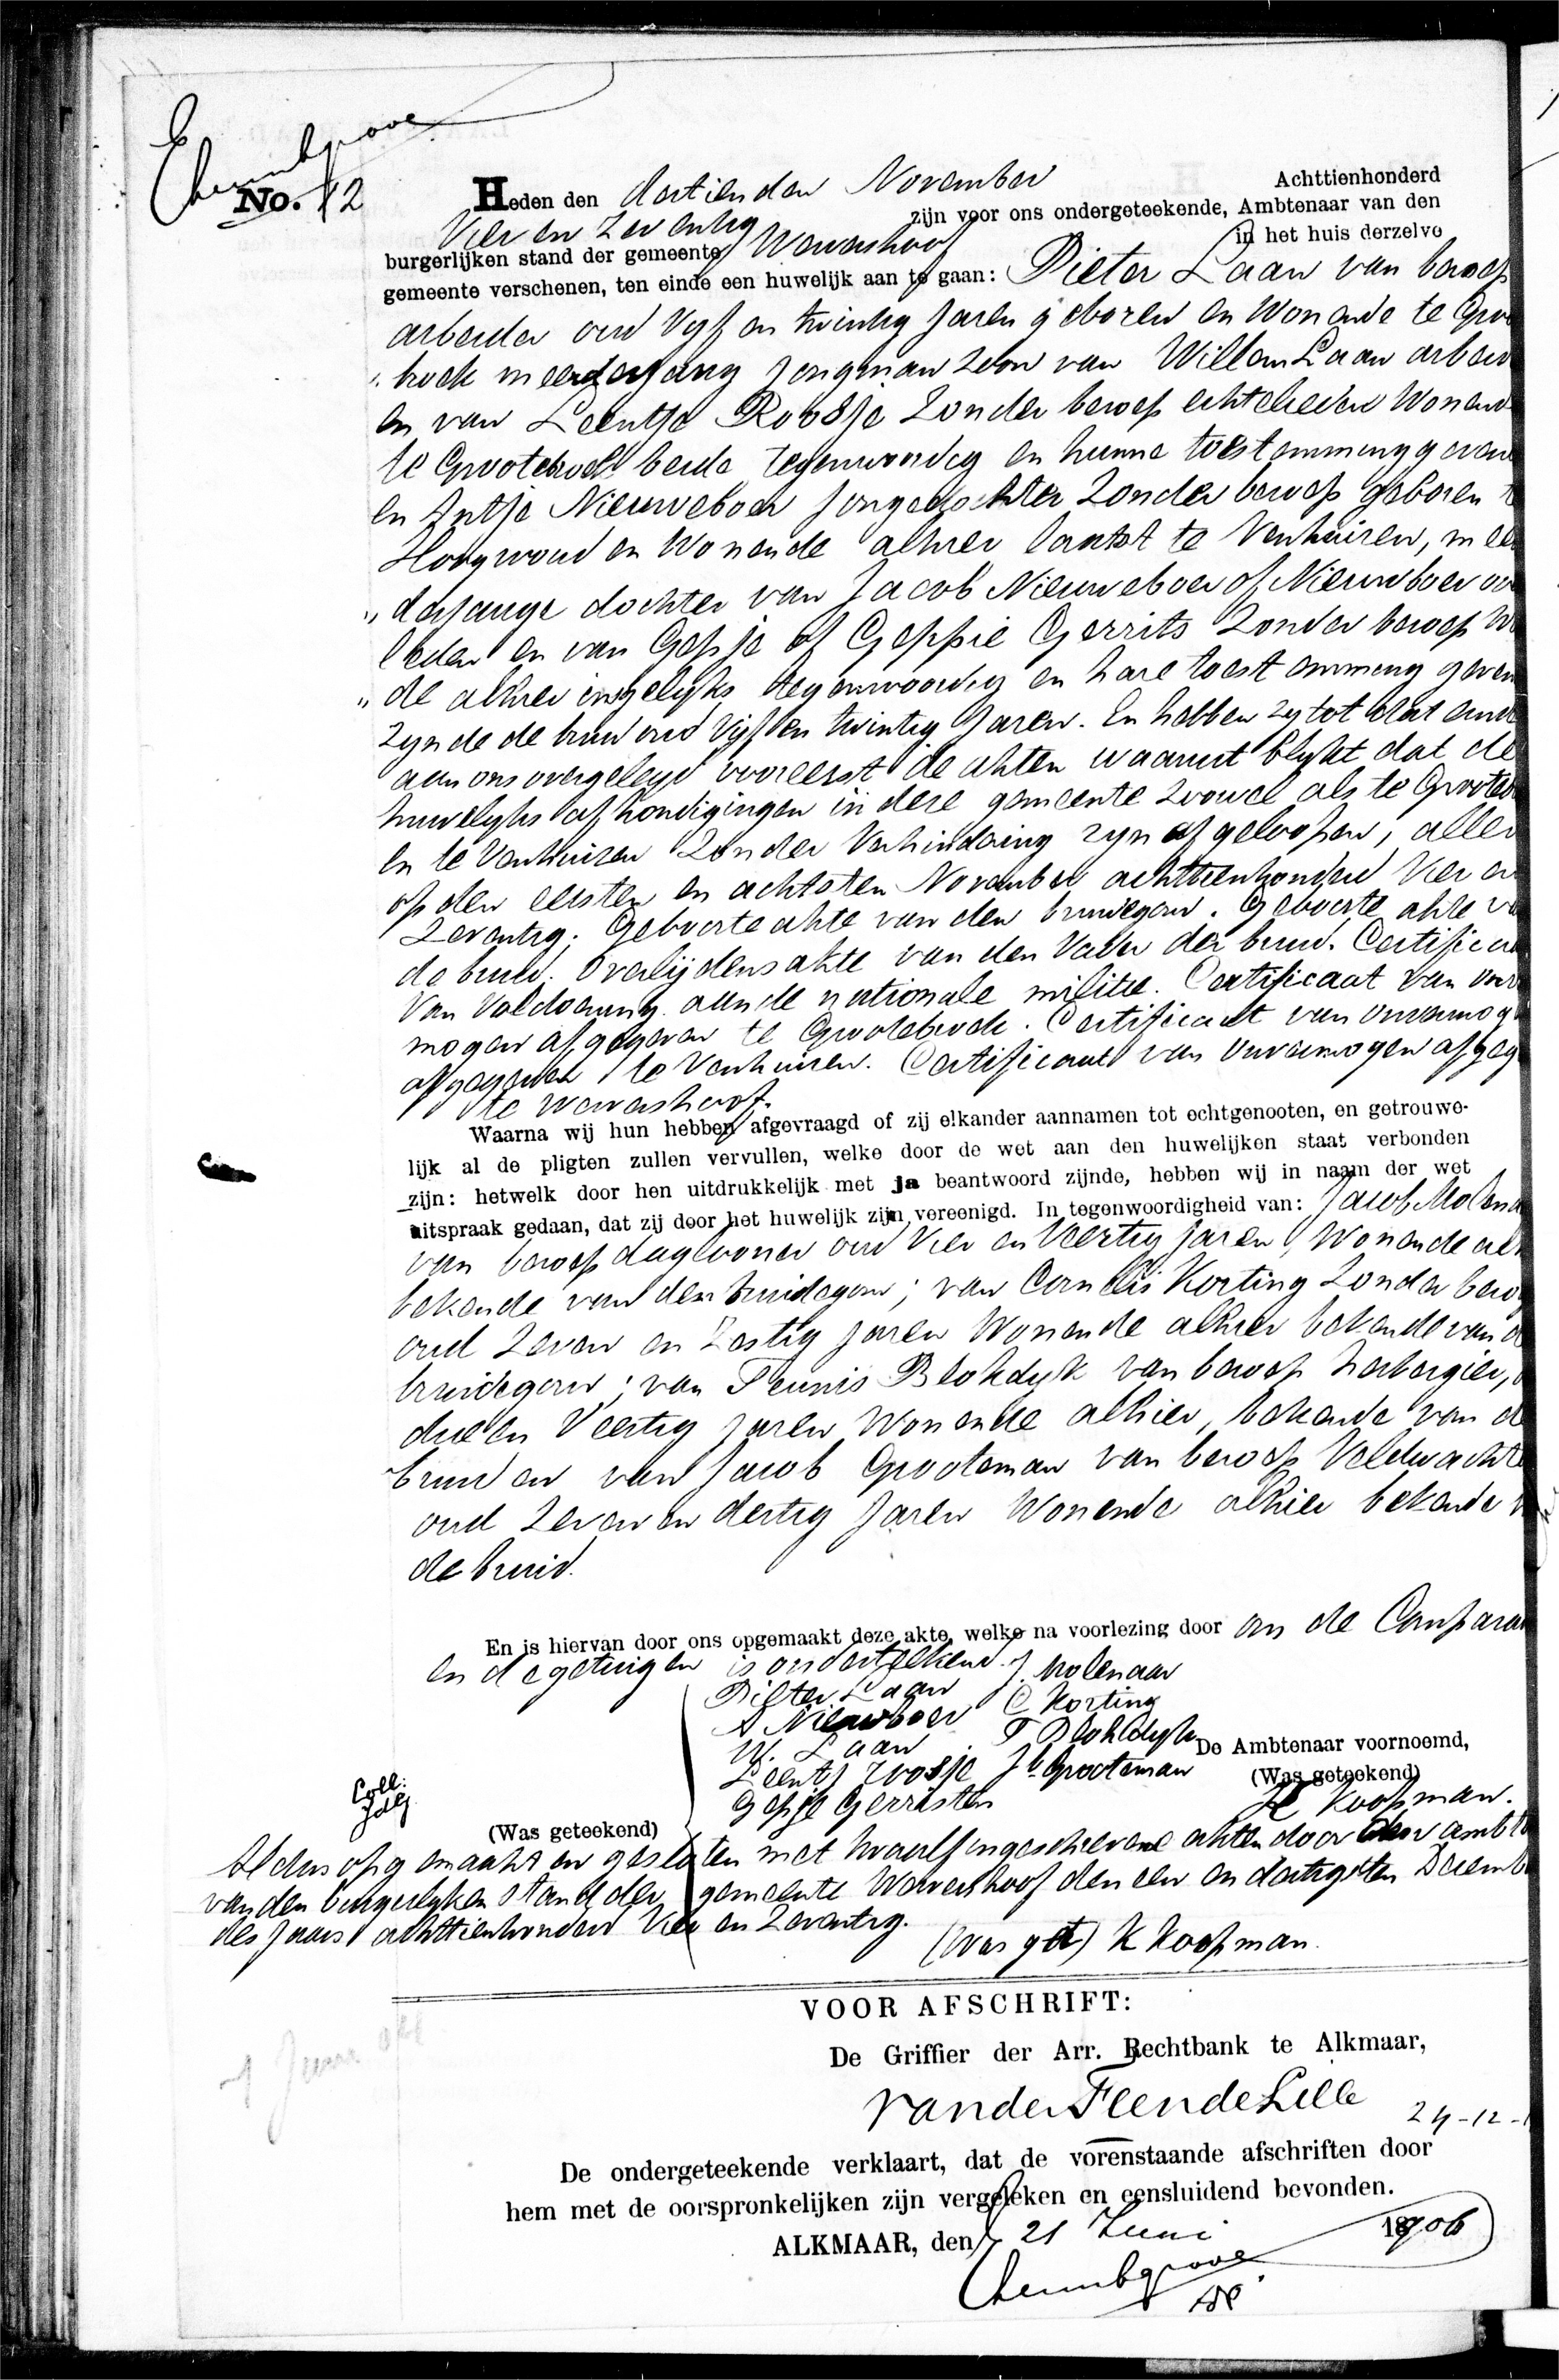 No. 12
Heden den dertienden November Achttienhonderd
Vier en Zeventig zijn voor ons ondergeteekende, Ambtenaar van den
burgerlijken stand der gemeente Wervershoof in het huis derzelve
gemeente verschenen, ten einde een huwelijk aan te gaan: Pieter Laan van beroep
arbeider oud Vijf en twintig Jaren geboren en Wonende te Groo
"broek meerderjarig Jongman Zoon van Willem Laan arbei
en van Leentje Roosje Zonder beroep echtelieden Wonend
te Grootebroek beide tegenwoordig en hunne toestemming geven
en Antje Nieuweboer Jongedochter Zonder beroep geboren t
Hoogwoud en Wonende alhier laatst te Venhuizen, mee
"derjarige dochter van Jacob Nieuweboer of Nieuwboer ov
leden en van Gepje of Geppie Gerrits Zonder beroep Wo
"de alhier insgelijks tegenwoordig en hare toestemming geven
Zynde de bruid oud Vijf en twintig Jaren. En hebben zy tot dat eind
aan ons overgelegd vooreerst de akten waaruit blykt dat de
huwelyks afkondigingen in deze gemeente Zoowel als te Grooteb
en te Venhuizen Zonder Verhindering zyn afgeloopen, allen
op den eersten en achtsten November achttienhonderd Vier en
Zeventig. Geboorte akte van den bruidegom. Geboorte akte v
de bruid. Overlijdens akte van den Vader der bruid. Certificaa
Van Voldoening aan de nationale militie. Certificaat van onv
mogen afgegeven te Grootebroek. Certificaat van onvermoge
afgegeven te Venhuizen. Certificaat van Onvermogen afgeg
te Wervershoof.
Waarna wij hun hebben afgevraagd of zij elkander aannamen tot echtgenooten, en getrouwe-
lijk al de pligten zullen vervullen, welke door de wet aan den huwelijken staat verbonden
zijn: hetwelk door hen uitdrukkelijk met ja beantwoord zijnde, hebben wij in naam der wet
uitspraak gedaan, dat zij door het huwelijk zijn vereenigd. In tegenwoordigheid van: Jacob Molena
van beroep daglooner oud Vier en Veertig Jaren, Wonende al
bekende van den bruidegom; van Cornelis Korting Zonder bero
oud Zeven en Zestig Jaren Wonende alhier bekende van d
bruidegom; van Teunis Blokdyk van beroep herbergier,
drie en Veertig Jaren Wonende alhier, bekende van d
bruid en van Jacob Grooteman van beroep Veldwachte
oud Zeven en dertig Jaren Wonende alhier bekende v
de bruid.
En is hiervan door ons opgemaakt deze akte, welke na voorlezing door ons de Comparan
en de getuigen is onderteekend. J. Molenaar
Pieter Laan C Korting
A Nieuwboer T Blokdyk
W. Laan Jb Grooteman
Leentj Roosje
Gepje Gerristen
De Ambtenaar voornoemd,
(Was geteekend)
K Koopman.
Coll:
(Was geteekend)
Aldus opgemaakt en gesloten met twaalf ingeschrevene akten door den ambt
van den burgerlyken stand der gemeente Wervershoof den een en dertigsten Decemb
des Jaars achttienhonderd Vier en Zeventig.
(was get) K Koopman.
VOOR AFSCHRIFT:
De Griffier der Arr. Rechtbank te Alkmaar,
van der Feen de Lille
24-12-
De ondergeteekende verklaart, dat de vorenstaande afschriften door
hem met de oorspronkelijken zijn vergeleken en eensluidend bevonden.
ALKMAAR, den 21 Juni 1906